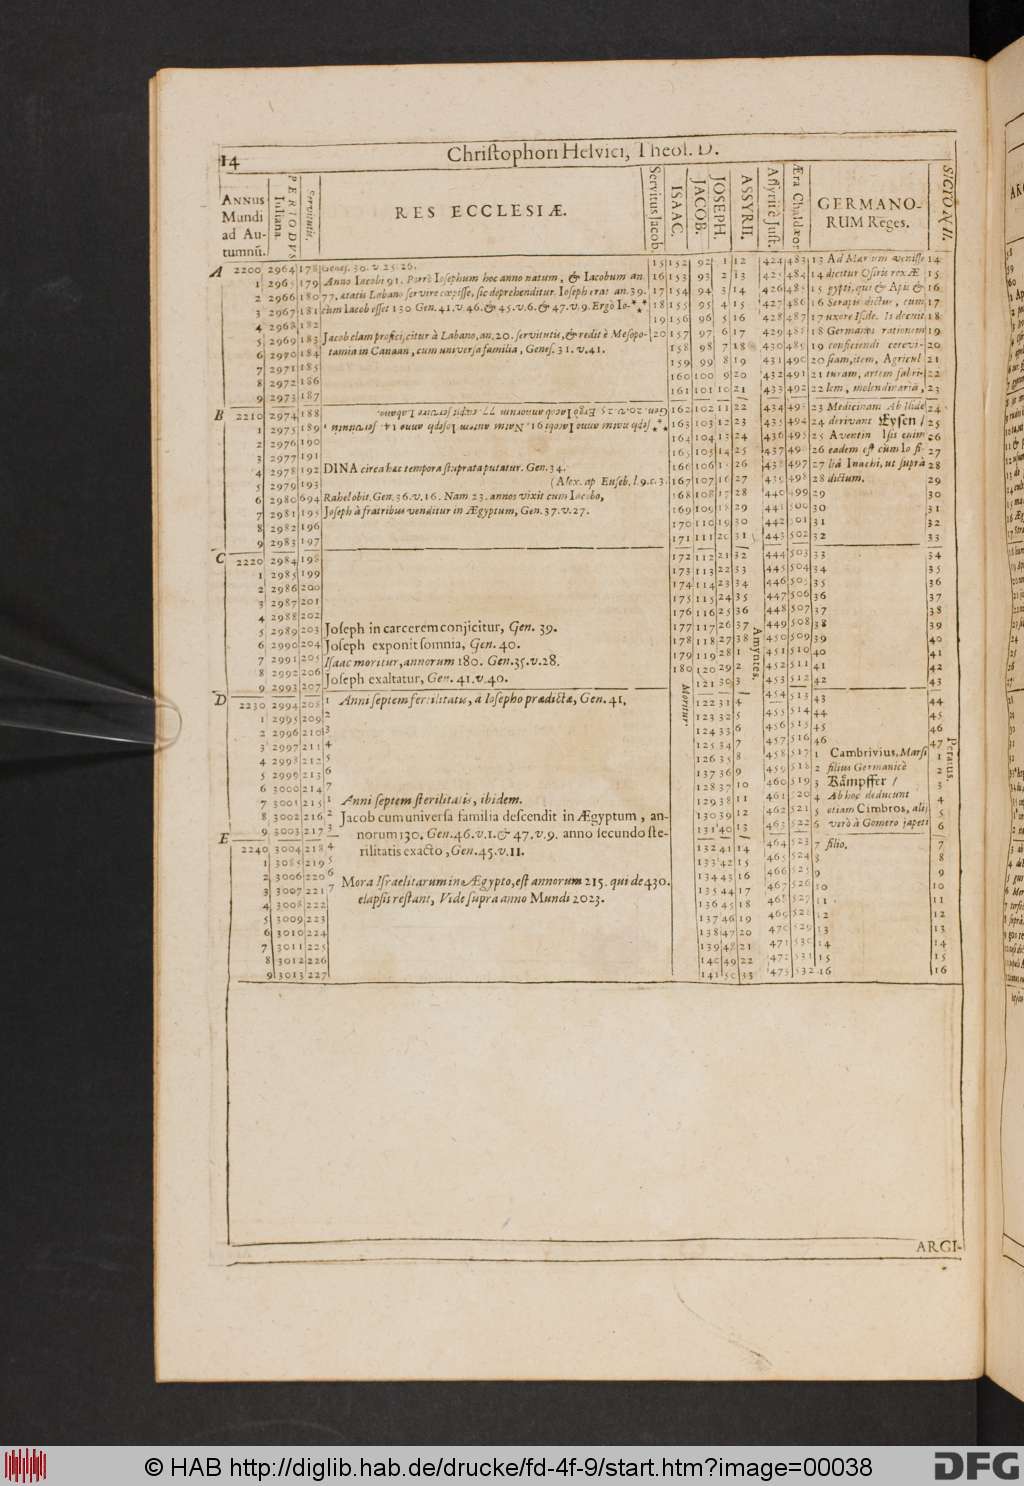 14
Christophori Helvici, Theol. D.
ANNUS Mundi ad Autumnũ.
PERIODUS Iuliana.
Servitutis.
RES ECCLESIÆ.
Servitus Jacob.
ISAAC.
JACOB.
JOSEPH.
ASSYRII.
Assyrii è Just.
Æra Chaldæor
GERMANO-
RUM Reges.
SICYONII.
A 2200 2964 178 Genes. 30. v. 25. 26. 15 152 92 1 12 424 483 13 Ad Mar um venisse 14
1 2965 179 Anno Iacobi 91. Porrò Iosephum hoc anno natum, & Iacobum an. 16 153 93 2 13 425 484 14 dicitur Osiris rex Æ 15
2 2966 180 77, ætatis Labano servire cœpisse, sic deprehenditur. Ioseph erat an. 39. 17 154 94 3 14 426 485 15 gypti, qui & Apis & 16
3 2967 181 cùm Iacob esset 130 Gen. 41. v. 46. & 45. v. 6. & 47. v. 9. Ergò Io-*** 18 155 95 4 15 427 486 16 Serapis dictur, cum 17
4 2968 182 19 156 96 5 16 428 487 17 uxore Iside. Is docuit 18
5 2969 183 Jacob clam proficiscitur à Labano, an. 20. servitutis, & redit è Mesopo- 20 157 97 6 17 429 488 18 Germanos rationem 19
6 2970 184 tamia in Canaan, cum universa familia, Genes. 31. v. 41. 158 98 7 18 430 489 19 conficiendi cerevi- 20
7 2971 185 159 99 8 19 431 490 20 siam, item, Agricul 21
8 2972 186 160 100 9 20 432 491 21 turam, artem fabri- 22
9 2973 187 161 101 10 21 433 492 22 lem, molendinariā, 23
B 2210 2974 188 Gen. 20. v. 25 Ergò Iacob annorum 77 cœpit servire Labano. 162 102 11 22 434 493 23 Medicinam Ab Iside 24
1 2975 189 *** seph natus anno Iacobi 91. Natus autem Ioseph anno 14. servitutis, 163 103 12 23 435 494 24 derivant Eysen / 25
2 2976 190 164 104 13 24 436 495 25 Aventin Isis enim 26
3 2977 191 165 105 14 25 437 496 26 eadem est cùm Io fi- 27
4 2978 192 DINA circa hæc tempora stuprata putatur. Gen. 34. 166 106 15 26 438 497 27 liâ Inachi, ut suprà 28
5 2979 193 (Alex. ap Euseb. l. 9. c. 3. 167 107 16 27 439 498 28 dictum. 29
6 2980 694 Rahel obit. Gen. 36. v. 16. Nam 23. annos vixit cum Iacobo, 168 108 17 28 440 499 29 30
7 2981 195 Joseph à fratribus venditur in Ægyptum, Gen. 37. v. 27. 169 109 18 29 441 500 30 31
8 2982 196 170 110 19 30 442 501 31 32
9 2983 197 171 111 20 31 443 502 32 33
C 2220 2984 198 172 112 21 32 444 503 33 34
1 2985 199 173 113 22 33 445 504 34 35
2 2986 200 174 114 23 34 446 505 35 36
3 2987 201 175 115 24 35 447 506 36 37
4 2988 202 176 116 25 36 448 507 37 38
5 2989 203 Joseph in carcerem conjicitur, Gen. 39. 177 117 26 37 449 508 38 39
6 2990 204 Joseph exponit somnia, Gen. 40. 178 118 27 38 450 509 39 40
7 2991 205 Isaac moritur, annorum 180. Gen. 35. v. 28. 179 119 28 1 451 510 40 41
8 2992 206 180 120 29 2 452 511 41 42
9 2993 207 Joseph exaltatur, Gen. 41. v. 40. 121 30 3 453 512 42 43
Amyntes.
Moritur.
D 2230 2994 208 1 Anni septem fertilitatis, à Iosepho prædictæ, Gen. 41. 122 31 4 454 513 43 44
1 2995 209 2 123 32 5 455 514 44 45
2 2996 210 3 124 33 6 456 515 45 46
3 2997 211 4 125 34 7 457 516 46 47
4 2998 212 5 126 35 8 458 517 1 Cambrivius, Marsi 1
5 2999 213 6 127 36 9 459 518 2 filius Germanicè 2
6 3000 214 7 128 37 10 460 519 3 Kämpffer / 3
7 3001 215 1 Anni septem sterilitatis, ibidem. 129 38 11 461 520 4 Ab hoc deducunt 4
8 3002 216 2 Jacob cum universa familia descendit in Ægyptum, an- 130 39 12 462 521 5 etiam Cimbros, alij 5
9 3003 217 3 norum 130. Gen. 46. v. 1. & 47. v. 9. anno secundo ste- 131 40 13 463 522 6 verò à Gomero Japeti 6
Peratus.
E 2240 3004 218 4 rilitatis exacto, Gen. 45. v. 11. 132 41 14 464 523 7 filio. 7
1 3085 219 5 133 42 15 465 524 8 8
2 3006 220 6 Mora Israelitarum in Ægypto, est annorum 215. qui de 430. 134 43 16 466 525 9 9
3 3007 221 7 elapsis restant, Vide supra anno Mundi 2023. 135 44 17 467 526 10 10
4 3008 222 136 45 18 468 527 11 11
5 3009 223 137 46 19 469 528 12 12
6 3010 224 138 47 20 470 529 13 13
7 3011 225 139 48 21 471 530 14 14
8 3012 226 140 49 22 472 531 15 15
9 3013 227 141 50 33 473 532 16 16
ARGI-
© HAB http://diglib.hab.de/drucke/fd-4f-9/start.htm?image=00038
DFG